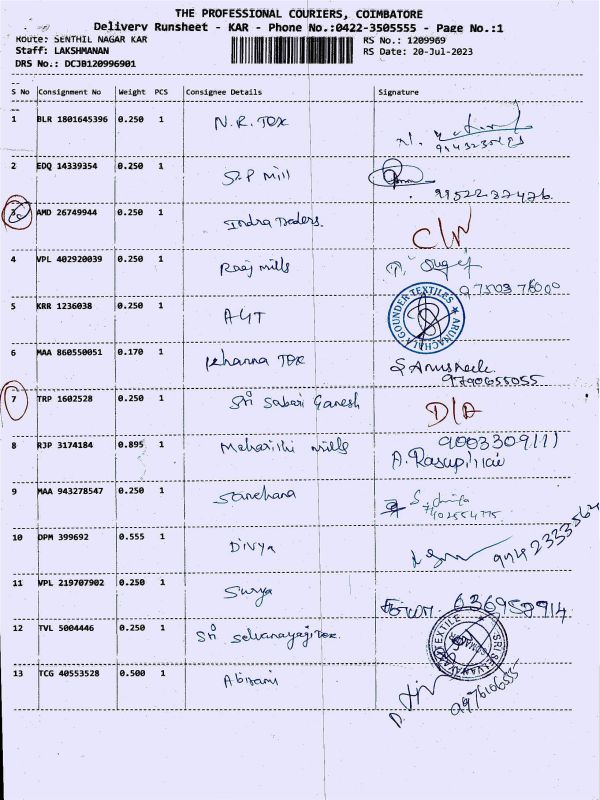 THE PROFESSIONAL COURIERS, COIMBATORE
Delivery Runsheet - KAR - Phone No.:0422-3505555 - Page No.:1
Route: SENTHIL NAGAR KAR RS No.: 1209969
Staff: LAKSHMANAN RS Date: 20-Jul-2023
DRS No.: DCJB120996901
S No Consignment No Weight PCS Consignee Details Signature
1 BLR 1801645396 0.250 1 N.R. Tex
2 EDQ 14339354 0.250 1 S.R.P Mill
3 AMD 26749944 0.250 1 Indra Traders.
4 VPL 402920039 0.250 1 Raaj mills
5 KRR 1236038 0.250 1 AGT
ARUNACHALA GOUNDER TEXTILES
6 MAA 860550051 0.170 1 Khanna Tex
9790655055
7 TRP 1602528 0.250 1 Sri Sabari Ganesh D/A
8 RJP 3174184 0.895 1 Maharishi mills 9003309111
9 MAA 943278547 0.250 1
7402554775
10 DPM 399692 0.555 1 Divya
11 VPL 219707902 0.250 1 Surya
12 TVL 5004446 0.250 1 Sri Selvanayaji Tex.
13 TCG 40553528 0.500 1 Abirami